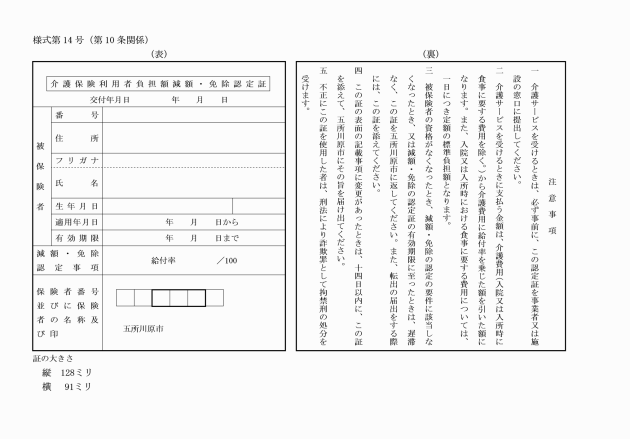 様式第14号（第10条関係）
（表）
介護保険利用者負担額減額・免除認定証
交付年月日　　年　月　日
被保険者
番　号
住　所
フリガナ
氏　名
生年月日
適用年月日　　年　月　日から
有効期限　　年　月　日まで
減額・免除
認定事項
給付率　　／100
保険者番号
並びに保険
者の名称及
び印
五所川原市
（裏）
注意事項
一　介護サービスを受けるときは、必ず事前に、この認定証を事業者又は施
設の窓口に提出してください。
二　介護サービスを受けるときに支払う金額は、介護費用（入院又は入所時に
食事に要する費用を除く。）から介護費用に給付率を乗じた額を引いた額に
なります。また、入院又は入所時における食事に要する費用については、
一日につき定額の標準負担額となります。
三　被保険者の資格がなくなったとき、減額・免除の認定の要件に該当しな
くなったとき、又は減額・免除の認定証の有効期限に至ったときは、遅滞
なく、この証を五所川原市に返してください。また、転出の届出をする際
には、この証を添えてください。
四　この証の表面の記載事項に変更があったときは、十四日以内に、この証
を添えて、五所川原市にその旨を届け出てください。
五　不正にこの証を使用した者は、刑法により詐欺罪として拘禁刑の処分を
受けます。
証の大きさ
縦　128ミリ
横　91ミリ